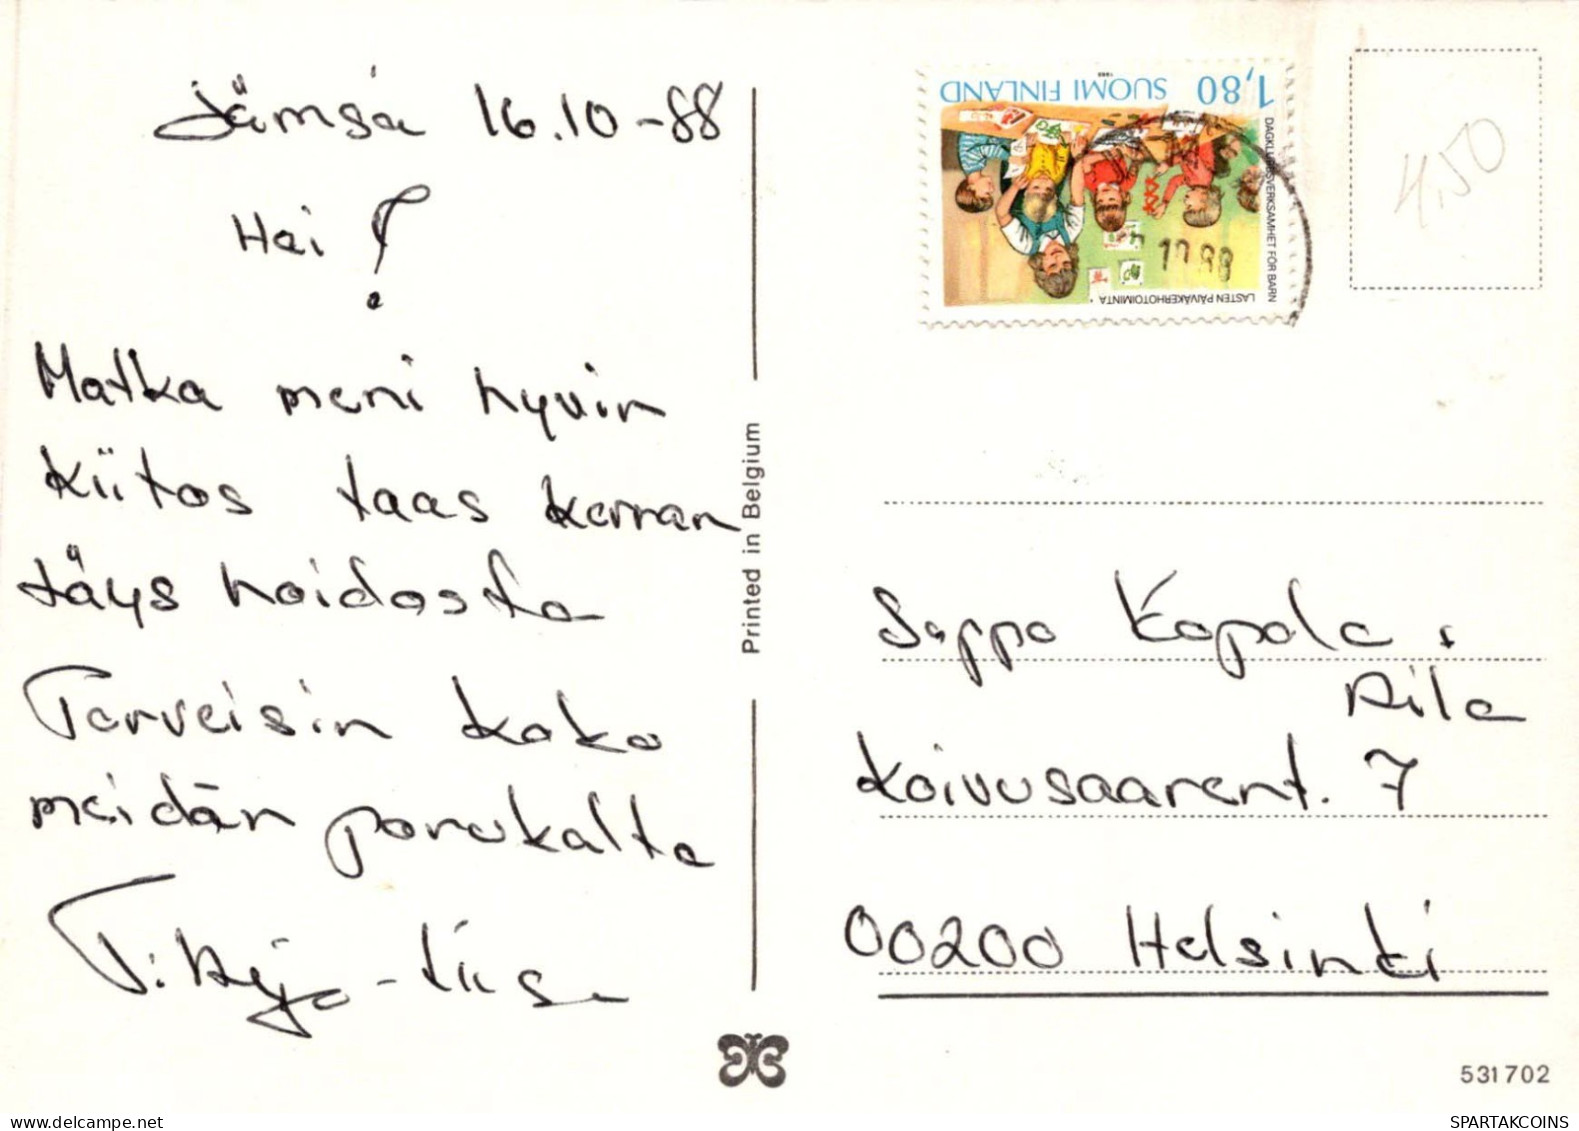 Jämsä 16.10-88
Hei!
Matka meni hyvin
Kiitos taas kerran
täys hoidosta
Terveisin koko
meidän porukalta
T. Aija-Liisa
Printed in Belgium
1,80 SUOMI FINLAND
1988
DAGKLUBBSVERKSAMHET FÖR BARN
LASTEN PÄIVÄKERHOTOIMINTA
4,50
Seppo Kapala
Aila
Koivusaarent. 7
00200 Helsinki
531702
SPARTAKCOINS